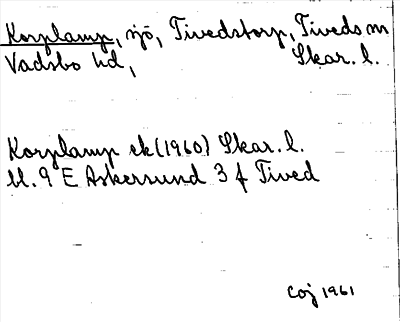 Korplamp, sjö, Tivedstorp, Tiveds sn
Vadsbo hd, Skar. l.
Korplamp ek (1960) Skar. l.
Bl. 9 E Askersund 3 f Tived
Coj 1961